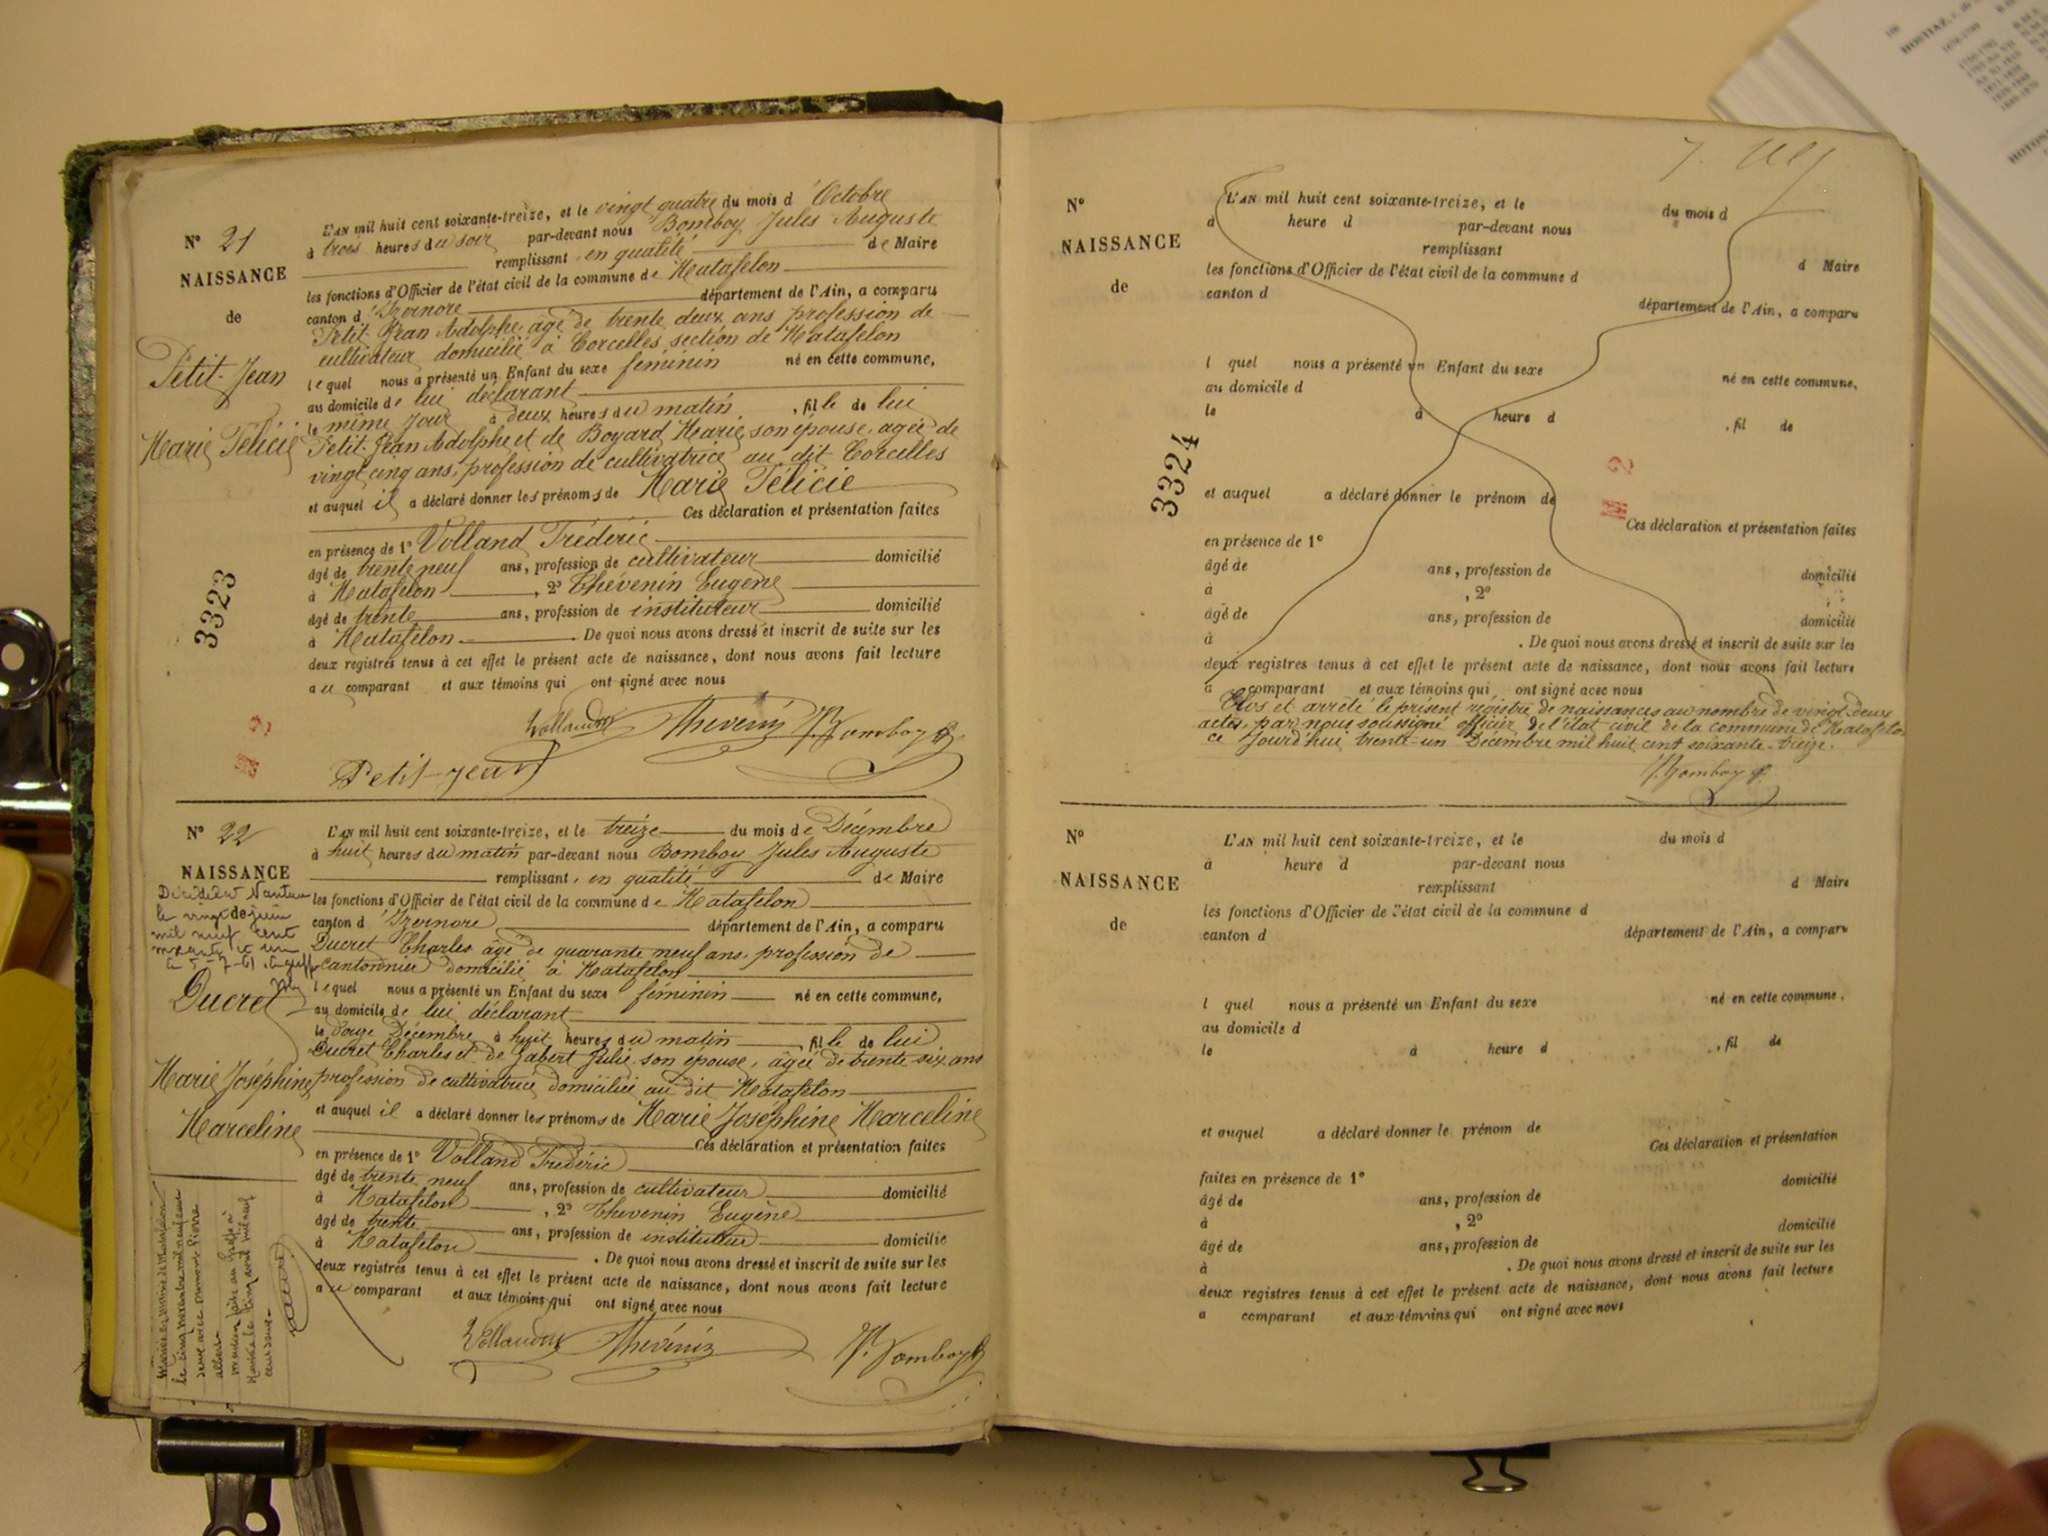 N° 21
NAISSANCE
de
Petit-Jean
Marie Félicie
3323
L'AN mil huit cent soixante-treize, et le vingt quatre du mois d'Octobre
à trois heures du soir par-devant nous Bomboy Jules Auguste
remplissant en qualité de Maire
les fonctions d'Officier de l'état civil de la commune de Matafelon
canton d'Izernore département de l'Ain, a comparu
Petit-Jean Adolphe, âgé de trente deux ans, profession de
cultivateur domicilié à Corcelles section de Matafelon
lequel nous a présenté un Enfant du sexe féminin né en cette commune,
au domicile de lui déclarant
le même jour à deux heures du matin, fille de lui
Petit-Jean Adolphe et de Boyard Marie, son épouse, agée de
vingt cinq ans, profession de cultivatrice au dit Corcelles
et auquel il a déclaré donner les prénoms de Marie Félicie
Ces déclaration et présentation faites
en présence de 1° Volland Frédéric
âgé de trente neuf ans, profession de cultivateur domicilié
à Matafelon, 2° Thévenin Eugène
âgé de trente ans, profession de instituteur domicilié
à Matafelon. De quoi nous avons dressé et inscrit de suite sur les
deux registres tenus à cet effet le présent acte de naissance, dont nous avons fait lecture
au comparant et aux témoins qui ont signé avec nous
Volland Thévenin J. Bomboy
Petit-jean
N° 22
NAISSANCE
Décédée à Nantua
le vingt de juin
mil neuf cent
soixante et un
Ducret
Marie Joséphine
Marceline
L'AN mil huit cent soixante-treize, et le treize du mois de Décembre
à huit heures du matin par-devant nous Bomboy Jules Auguste
remplissant, en qualité de Maire
les fonctions d'Officier de l'état civil de la commune de Matafelon
canton d'Izernore département de l'Ain, a comparu
Ducret Charles âgé de quarante neuf ans, profession de
cantonnier domicilié à Matafelon
lequel nous a présenté un Enfant du sexe féminin né en cette commune,
au domicile de lui déclarant
le douze Décembre à huit heures du matin, fille de lui
Ducret Charles et de Gabert Julie son épouse, âgée de trente six ans
profession de cultivatrice domiciliée au dit Matafelon
et auquel il a déclaré donner les prénoms de Marie Joséphine Marceline
Ces déclaration et présentation faites
en présence de 1° Volland Frédéric
âgé de trente neuf ans, profession de cultivateur domicilié
à Matafelon, 2° Thevenin Eugène
âgé de trente ans, profession de instituteur domicilié
à Matafelon. De quoi nous avons dressé et inscrit de suite sur les
deux registres tenus à cet effet le présent acte de naissance, dont nous avons fait lecture
au comparant et aux témoins qui ont signé avec nous
Volland Thévenin J. Bomboy
Mariée en mairie de Matafelon
le cinq novembre mil neuf cent
N°
NAISSANCE
de
3324
L'AN mil huit cent soixante-treize, et le du mois d
à heure d par-devant nous
remplissant d Maire
les fonctions d'Officier de l'état civil de la commune d
canton d département de l'Ain, a comparu
l quel nous a présenté un Enfant du sexe né en cette commune,
au domicile d
le à heure d , fil de
et auquel a déclaré donner le prénom de
Ces déclaration et présentation faites
en présence de 1°
âgé de ans, profession de domicilié
à , 2°
âgé de ans, profession de domicilié
à . De quoi nous avons dressé et inscrit de suite sur les
deux registres tenus à cet effet le présent acte de naissance, dont nous avons fait lecture
a comparant et aux témoins qui ont signé avec nous
Clos et arrêté le présent registre de naissances au nombre de vingt-deux
actes, par nous soussigné officier de l'état civil de la commune de Matafelon
ce jourd'hui trente-un Décembre mil huit cent soixante-treize.
J. Bomboy
N°
NAISSANCE
de
L'AN mil huit cent soixante-treize, et le du mois d
à heure d par-devant nous
remplissant d Maire
les fonctions d'Officier de l'état civil de la commune d
canton d département de l'Ain, a comparu
l quel nous a présenté un Enfant du sexe né en cette commune,
au domicile d
le à heure d , fil de
et auquel a déclaré donner le prénom de
Ces déclaration et présentation
faites en présence de 1° domicilié
âgé de ans, profession de
à , 2° domicilié
âgé de ans, profession de
à . De quoi nous avons dressé et inscrit de suite sur les
deux registres tenus à cet effet le présent acte de naissance, dont nous avons fait lecture
a comparant et aux témoins qui ont signé avec nous